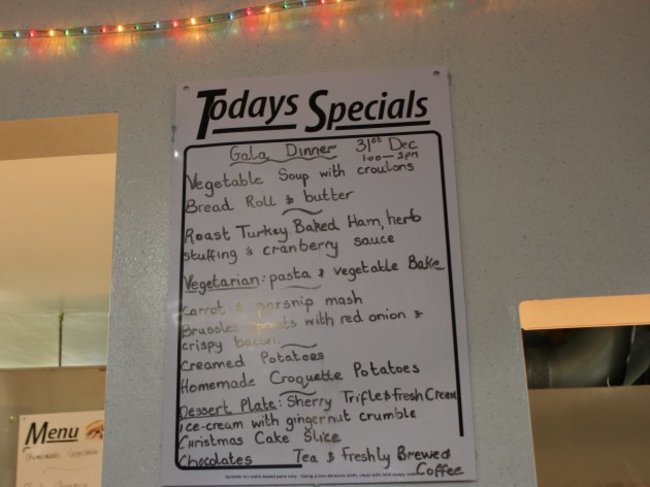 Todays Specials
Gala Dinner 31st Dec
1:00-3pm
Vegetable Soup with croutons
Bread Roll & butter
Roast Turkey Baked Ham, herb
stuffing & cranberry sauce
Vegetarian: pasta & vegetable Bake
Carrot & parsnip mash
Brussles sprouts with red onion &
crispy bacon.
Creamed Potatoes
Homemade Croquette Potatoes
Dessert Plate: Sherry Trifle & fresh Cream
ice-cream with gingernut crumble
Christmas Cake Slice
Chocolates Tea & Freshly Brewed
Coffee
Menu
Homemade Vegetable